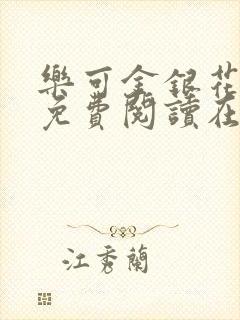 樂可金銀花
免費閱讀在
江秀蘭